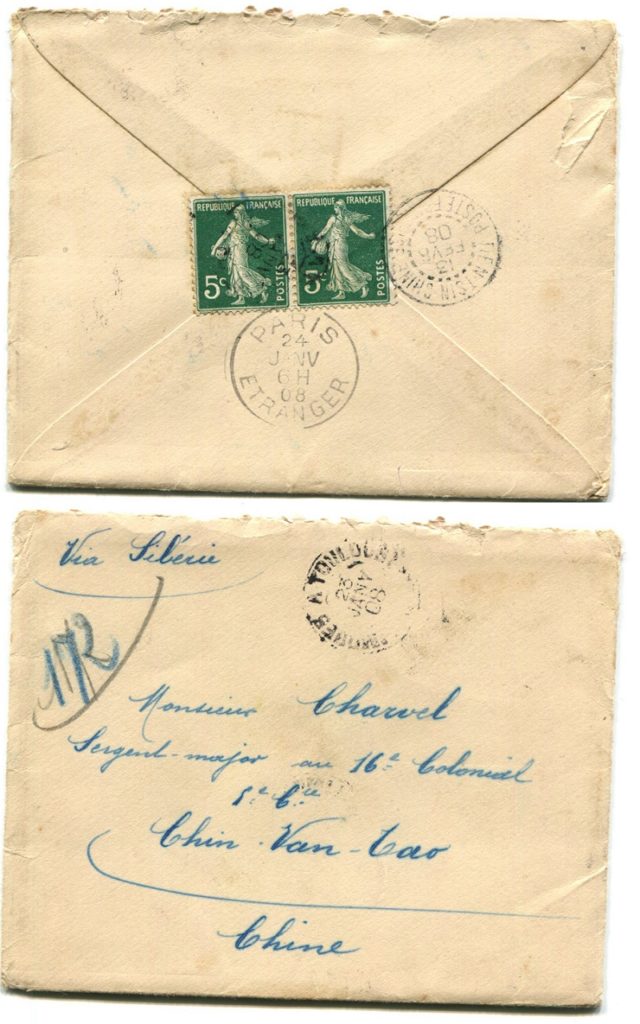 REPUBLIQUE FRANÇAISE
5c POSTES
REPUBLIQUE FRANÇAISE
5c POSTES
TIEN-TSIN CHINE
POSTE FRE
13
FEVR
08
PARIS
24
JANV
6H
08
ETRANGER
Via Sibérie
172
A TOULOUSE
23
JANV
08
Monsieur Charvel
Sergent-major au 16e Colonial
5e Cie
Chin-Van-Tao
Chine